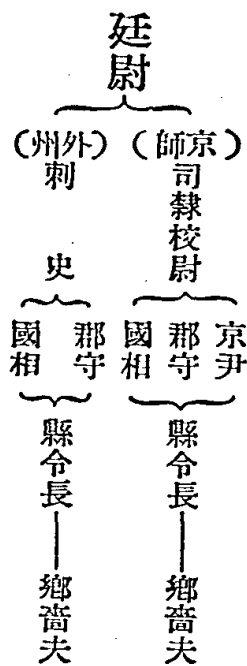 廷尉
(京師)
司隸校尉
京尹
郡守
國相
縣令長——鄉嗇夫
(外州)
刺史
郡守
國相
縣令長——鄉嗇夫